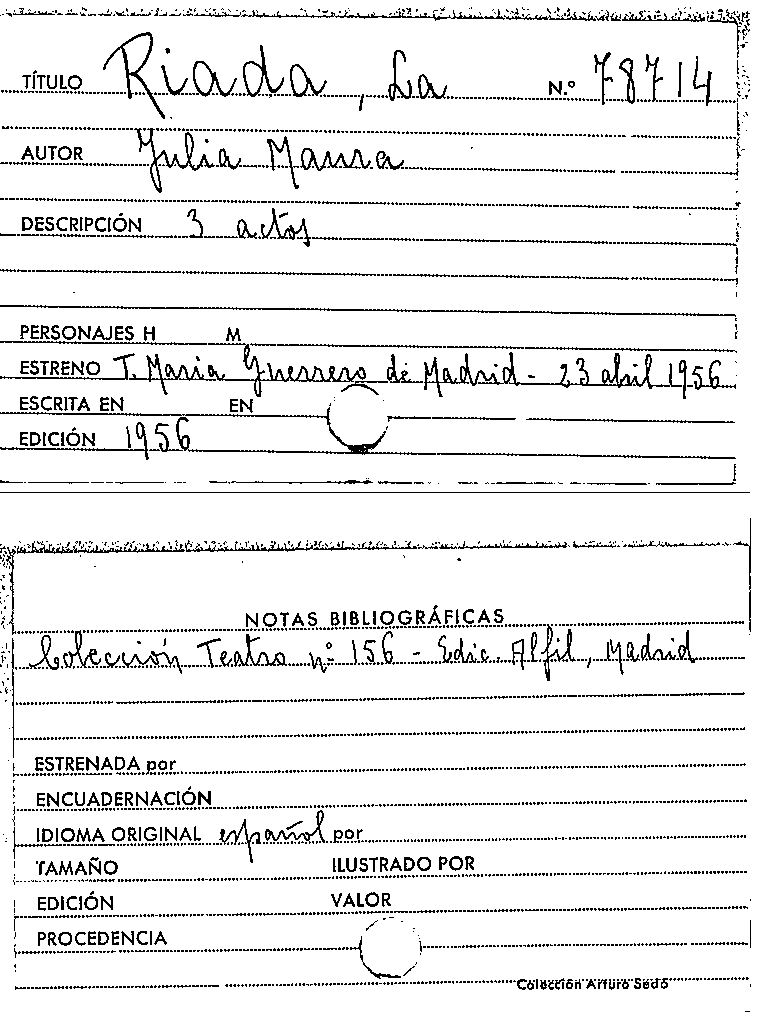 TÍTULO Riada, La N.º 78714
AUTOR Julia Maura
DESCRIPCIÓN 3 actos
PERSONAJES H M
ESTRENO T. Maria Guerrero de Madrid - 23 abril 1956
ESCRITA EN EN
EDICIÓN 1956
NOTAS BIBLIOGRÁFICAS
Colección Teatro nº 156 - Edic. Alfil, Madrid
ESTRENADA por
ENCUADERNACIÓN
IDIOMA ORIGINAL español por
TAMAÑO ILUSTRADO POR
EDICIÓN VALOR
PROCEDENCIA
Colección Arturo Sedó